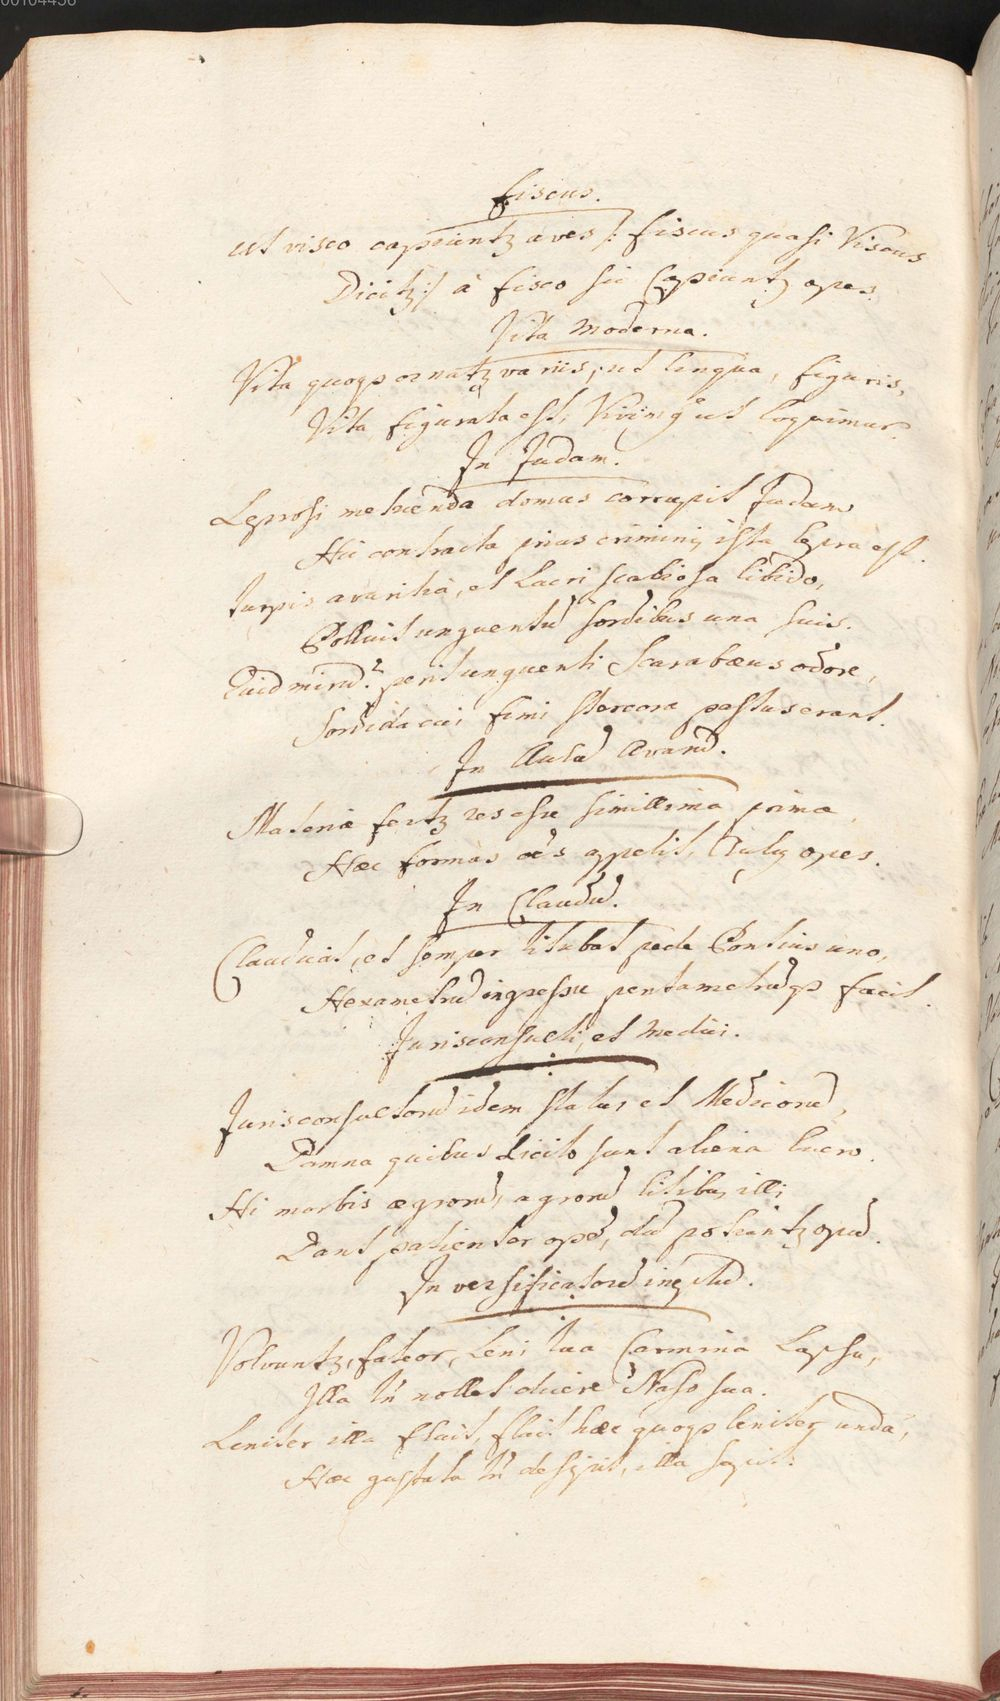 00104456
Fiscus.
Ut visco capiuntz aves /: Fiscus quasi Viscus
Dicitz :/ à Fisco sic Capiuntz opes.
Vita Moderna.
Vita quoqz ornatz variis, ut lingua, figuris,
Vita figurata est, ut loquimur.
In Judam.
Leprosi metuenda domus corrupit Judam
Hic contracta prius criminis ista lepra est.
Turpis avaritia, et Lucri scabiosa libido,
Polluit unguentũ sordibus una suis.
Quid mirũ? perit unguenti Scarabæus odore,
Sordida cui fimi stercora pastus erant.
In Aulũ Avarũ.
Materiæ fertz res esse simillima primæ,
Hæc formas oẽs appetit, Aulus opes.
In Claudũ.
Claudicat, et semper titubat pede Pontius uno,
Hexametrũ ingressu pentametrũqz facit.
Jurisconsulti, et Medici.
Jurisconsultorũ idem status et Medicorũ,
Damna quibus licito sunt aliena lucro.
Hi morbis ægrorũ, agrorũ litibus illi
Dant patienter opẽ, dũ potiuntz opũ.
In versificatorũ ineptũ.
Volvuntz, fateor, Leni tua Carmina Lapsu,
Illa tñ nollet dicere Naso sua.
Leniter illa fluit, fluit hæc quoqz leniter unda,
Hæc gustata tñ desipit, illa sapit.